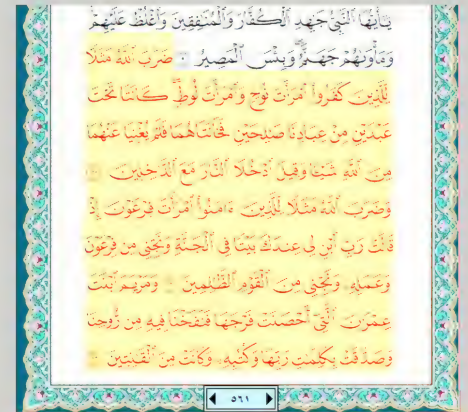 يَٰٓأَيُّهَا ٱلنَّبِىُّ جَٰهِدِ ٱلْكُفَّارَ وَٱلْمُنَٰفِقِينَ وَٱغْلُظْ عَلَيْهِمْ
وَمَأْوَىٰهُمْ جَهَنَّمُ وَبِئْسَ ٱلْمَصِيرُ ضَرَبَ ٱللَّهُ مَثَلًا
لِّلَّذِينَ كَفَرُوا۟ ٱمْرَأَتَ نُوحٍ وَٱمْرَأَتَ لُوطٍ كَانَتَا تَحْتَ
عَبْدَيْنِ مِنْ عِبَادِنَا صَٰلِحَيْنِ فَخَانَتَاهُمَا فَلَمْ يُغْنِيَا عَنْهُمَا
مِنَ ٱللَّهِ شَيْـًٔا وَقِيلَ ٱدْخُلَا ٱلنَّارَ مَعَ ٱلدَّٰخِلِينَ
وَضَرَبَ ٱللَّهُ مَثَلًا لِّلَّذِينَ ءَامَنُوا۟ ٱمْرَأَتَ فِرْعَوْنَ إِذْ
قَالَتْ رَبِّ ٱبْنِ لِى عِندَكَ بَيْتًا فِى ٱلْجَنَّةِ وَنَجِّنِى مِن فِرْعَوْنَ
وَعَمَلِهِۦ وَنَجِّنِى مِنَ ٱلْقَوْمِ ٱلظَّٰلِمِينَ وَمَرْيَمَ ٱبْنَتَ
عِمْرَٰنَ ٱلَّتِىٓ أَحْصَنَتْ فَرْجَهَا فَنَفَخْنَا فِيهِ مِن رُّوحِنَا
وَصَدَّقَتْ بِكَلِمَٰتِ رَبِّهَا وَكُتُبِهِۦ وَكَانَتْ مِنَ ٱلْقَٰنِتِينَ
٥٦١